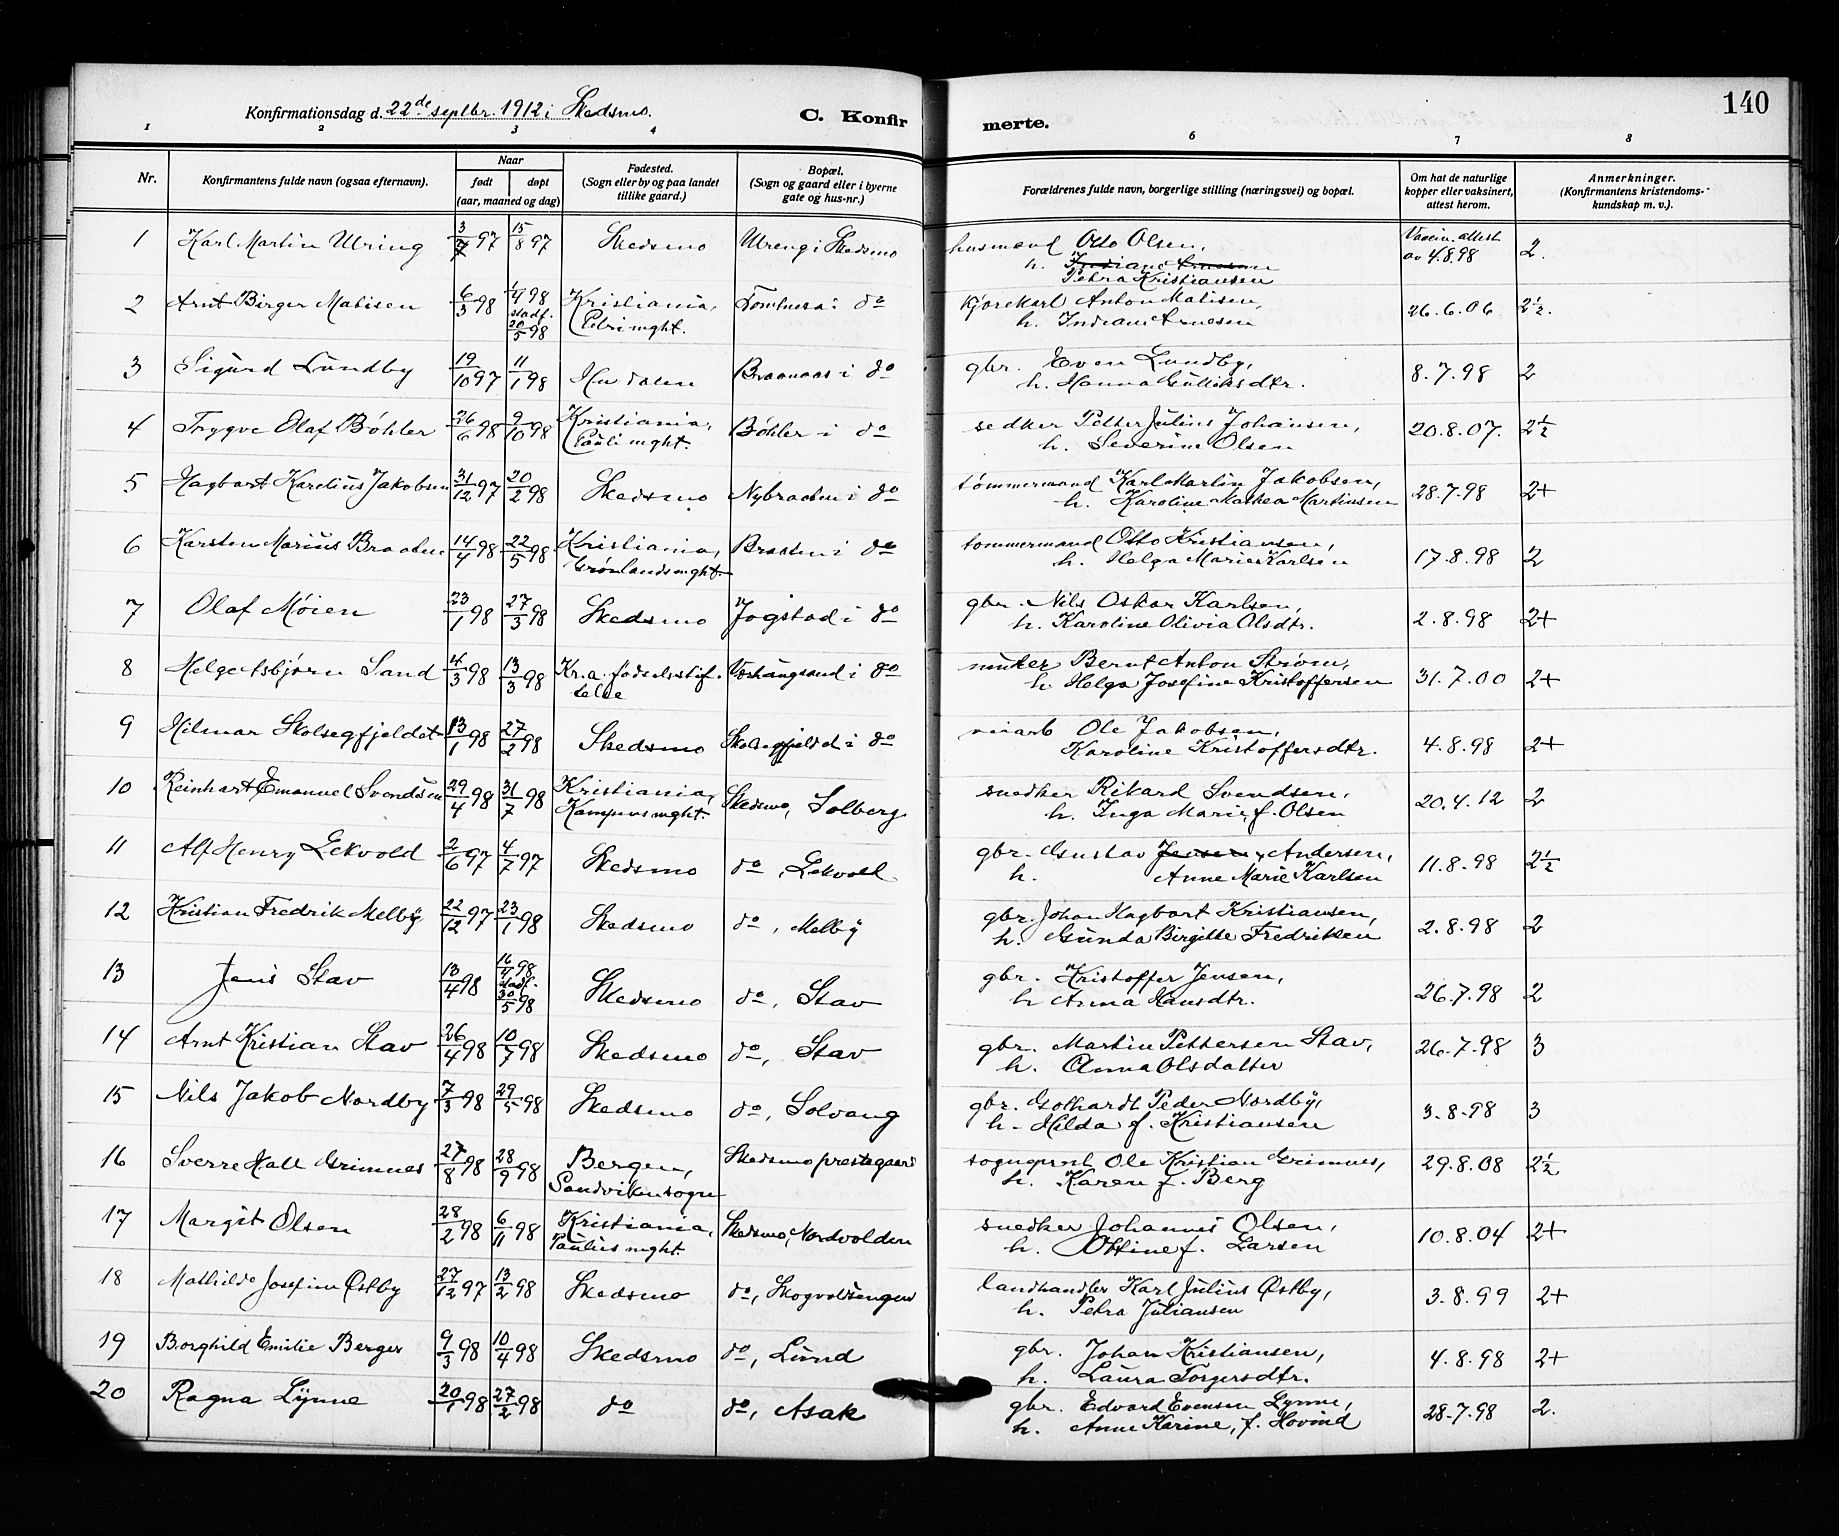 140
Konfirmationsdag d. 22de septbr. 1912 i Skedsmo.
C. Konfirmerte.
1 2 3 4 6 7 8
Nr. Konfirmantens fulde navn (ogsaa efternavn). Naar født døpt (aar, maaned og dag) Fødested. (Sogn eller by og paa landet tillike gaard.) Bopæl. (Sogn og gaard eller i byerne gate og hus-nr.) Forældrenes fulde navn, borgerlige stilling (næringsvei) og bopæl. Om hat de naturlige kopper eller vaksinert, attest herom. Anmerkninger. (Konfirmantens kristendoms-kundskap m. v.).
1 Karl Martin Ulring 15/8 97 Skedsmo Ulreng i Skedsmo husmand Otto Olsen, Vaccin. attest av 4.8.98 2.
h. Petra Kristiansen
2 Arnt Birger Matisen 6/3 98 1/4 98 stadf. 20/5 98 Kristiania, Petri mght. i do kjørekarl Anton Matisen, 26.6.06 2½.
h. Indiane Arnesen
3 Sigurd Lundby 19/10 97 11/1 98 Hurdalen Braanaas i do gbr. Even Lundby, 8.7.98 2
h. Hanna Gulliksdtr.
4 Trygve Olaf Bøhler 26/6 98 9/10 98 Kristiania, Pauli mght. Bøhler i do sedker Petter Julius Johansen, 20.8.07. 2½
h. Severine Olsen
5 Hagbart Karelius Jakobsen 31/12 97 20/2 98 Skedsmo Nybraaten i do tømmermand Karl Martin Jakobsen, 28.7.98 2+
h. Karoline Mathea Martinsen
6 Karsten Marius Braaten 14/4 98 22/5 98 Kristiania, Grønlands mght. Braaten i do tømmermand Otto Kristiansen, 17.8.98 2
h. Helga Marie Karlsen
7 Olaf Møien 23/1 98 27/3 98 Skedsmo Jogstad i do gbr. Nils Oskar Karlsen, 2.8.98 2+
h. Karoline Olivia Olsdtr.
8 Helge Asbjørn Sand 4/3 98 13/3 98 Kr.a. fødselsstiftelse Vestengsand i do murer Bernt Anton Strøm, 31.7.00 2+
h. Helga Josefine Kristoffersen
9 Hilmar Skolsegfjeldet 13/1 98 27/2 98 Skedsmo Skolsegfjeldet i do veiarb Ole Jakobsen, 4.8.98 2+
Karoline Kristoffersdtr.
10 Reinhart Emanuel Svendsen 29/4 98 31/7 98 Kristiania, Kampens mght. Skedsmo, Solberg snedker Rikard Svendsen, 20.4.12 2
h. Inga Marie, f. Olsen
11 Alf Henry Lekvold 2/6 97 4/7 97 Skedsmo do, Lekvoll gbr. Gustav Jensen, Andersen, 11.8.98 2½
h. Anne Marie Karlsen
12 Kristian Fredrik Melby 22/12 97 23/1 98 Skedsmo do, Melby gbr. Johan Hagbart Kristiansen, 2.8.98 2
h. Gunda Birgitte Fredriksen
13 Jens Stav 13/4 98 16/4 98 stadf. 30/5 98 Skedsmo do, Stav gbr. Kristoffer Jensen, 26.7.98 2
h Anna Hansdtr.
14 Arnt Kristian Stav 26/4 98 10/7 98 Skedsmo do, Stav gbr. Martin Pettersen Stav, 26.7.98 3
h. Anna Olsdatter
15 Nils Jakob Nordby 7/3 98 29/5 98 Skedsmo do, Solvang gbr. Gothardt Peder Nordby, 3.8.98 3
h. Hilda f. Kristiansen
16 Sverre Hall Grimnes 27/8 98 28/9 98 Bergen, Sandviken sogn Skedsmo prestegaard sogneprest Ole Kristian Grimnes, 29.8.08 2½
h. Karen f. Berg
17 Margit Olsen 28/2 98 6/11 98 Kristiania, Paulus mght. Skedsmo, Nordvolden snedker Johannes Olsen, 10.8.04 2+
h. Ottine f. Larsen
18 Mathilde Josefine Østby 27/12 97 13/2 98 Skedsmo do, Skogvoldsengen landhandler Karl Julius Østby, 3.8.99 2+
h. Petra Juliansen
19 Borghild Emilie Berger 9/3 98 10/4 98 Skedsmo do, Lund gbr. Johan Kristiansen, 4.8.98 2+
h. Laura Torgersdtr.
20 Ragna Lynne 20/1 98 27/2 98 do do, Asak gbr. Edvard Evensen Lynne, 28.7.98 2.
h. Anne Karine, f. Hovind